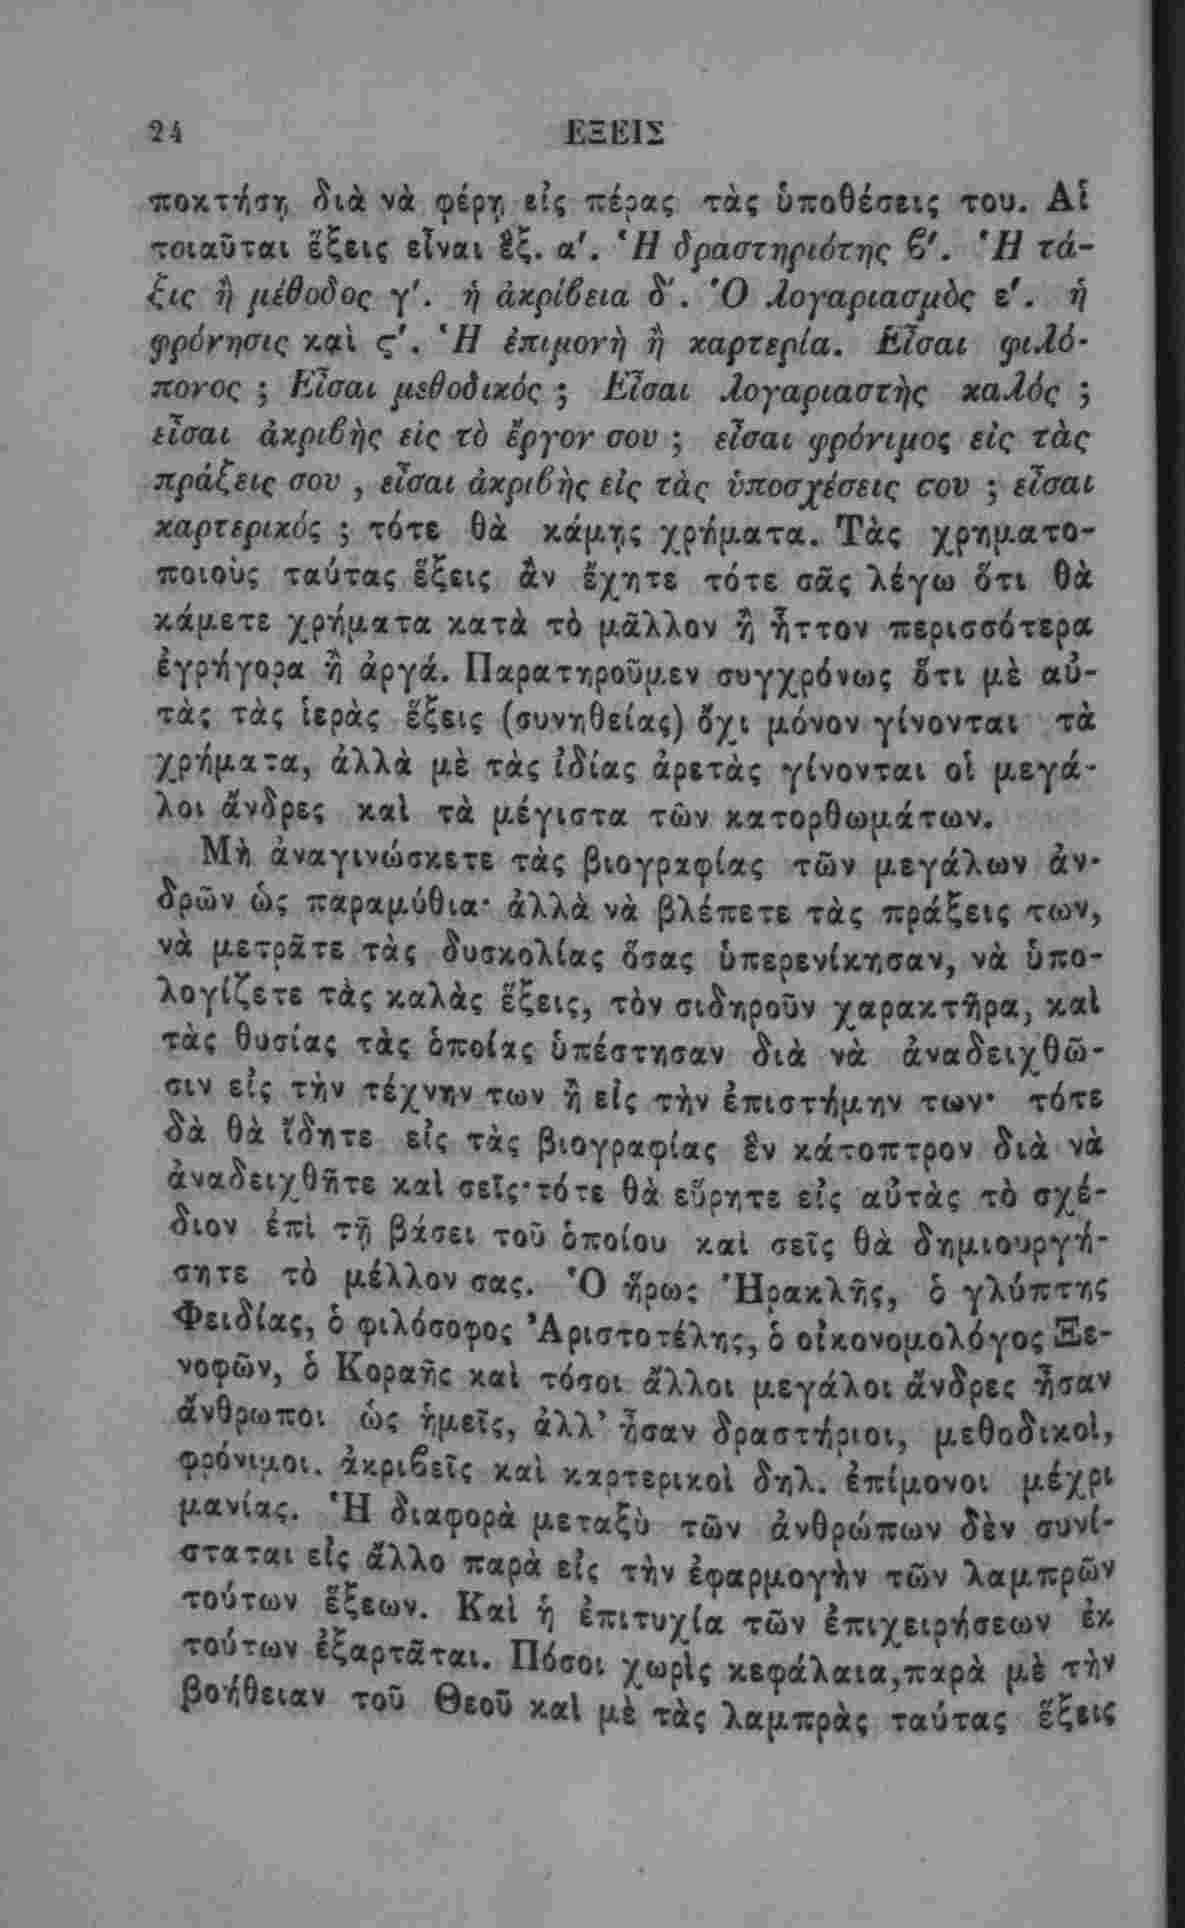 24 ΕΞΕΙΣ
ποκτήσῃ διὰ νὰ φέρῃ εἰς πέρας τὰς ὑποθέσεις του. Αἱ
τοιαῦται ἕξεις εἶναι ἕξ. α'. Ἡ δραστηριότης ϐ'. Ἡ τά-
ξις ἢ μέθοδος γ'. ἡ ἀκρίϐεια δ'. Ὁ λογαριασμὸς ε'. ἡ
φρόνησις καὶ ς'. Ἡ ἐπιμονὴ ἢ καρτερία. Εἶσαι φιλό-
πονος ; Εἶσαι μεθοδικός ; Εἶσαι λογαριαστὴς καλός ;
εἶσαι ἀκριϐὴς εἰς τὸ ἔργον σου ; εἶσαι φρόνιμος εἰς τὰς
πράξεις σου , εἶσαι ἀκριϐὴς εἰς τὰς ὑποσχέσεις σου ; εἶσαι
καρτερικός ; τότε θὰ κάμῃς χρήματα. Τὰς χρηματο-
ποιοὺς ταύτας ἕξεις ἂν ἔχητε τότε σᾶς λέγω ὅτι θὰ
κάμετε χρήματα κατὰ τὸ μᾶλλον ἢ ἧττον περισσότερα
ἐγρήγορα ἢ ἀργά. Παρατηροῦμεν συγχρόνως ὅτι μὲ αὐ-
τὰς τὰς ἱερὰς ἕξεις (συνηθείας) ὄχι μόνον γίνονται τὰ
χρήματα, ἀλλὰ μὲ τὰς ἰδίας ἀρετὰς γίνονται οἱ μεγά-
λοι ἄνδρες καὶ τὰ μέγιστα τῶν κατορθωμάτων.
Μὴ ἀναγινώσκετε τὰς βιογραφίας τῶν μεγάλων ἀν-
δρῶν ὡς παραμύθια· ἀλλὰ νὰ βλέπετε τὰς πράξεις των,
νὰ μετρᾶτε τὰς δυσκολίας ὅσας ὑπερενίκησαν, νὰ ὑπο-
λογίζετε τὰς καλὰς ἕξεις, τὸν σιδηροῦν χαρακτῆρα, καὶ
τὰς θυσίας τὰς ὁποίας ὑπέστησαν διὰ νὰ ἀναδειχθῶ-
σιν εἰς τὴν τέχνην των ἢ εἰς τὴν ἐπιστήμην των· τότε
δὰ θὰ ἴδητε εἰς τὰς βιογραφίας ἓν κάτοπτρον διὰ νὰ
ἀναδειχθῆτε καὶ σεῖς·τότε θὰ εὕρητε εἰς αὐτὰς τὸ σχέ-
διον ἐπὶ τῇ βάσει τοῦ ὁποίου καὶ σεῖς θὰ δημιουργή-
σητε τὸ μέλλον σας. Ὁ ἥρως Ἡρακλῆς, ὁ γλύπτης
Φειδίας, ὁ φιλόσοφος Ἀριστοτέλης, ὁ οἰκονομολόγος Ξε-
νοφῶν, ὁ Κοραῆς καὶ τόσοι ἄλλοι μεγάλοι ἄνδρες ἦσαν
ἄνθρωποι ὡς ἡμεῖς, ἀλλ' ἦσαν δραστήριοι, μεθοδικοὶ,
φρόνιμοι. ἀκριϐεῖς καὶ καρτερικοὶ δηλ. ἐπίμονοι μέχρι
μανίας. Ἡ διαφορὰ μεταξὺ τῶν ἀνθρώπων δὲν συνί-
σταται εἰς ἄλλο παρὰ εἰς τὴν ἐφαρμογὴν τῶν λαμπρῶν
τούτων ἕξεων. Καὶ ἡ ἐπιτυχία τῶν ἐπιχειρήσεων ἐκ
τούτων ἐξαρτᾶται. Πόσοι χωρὶς κεφάλαια,παρὰ μὲ τὴν
βοήθειαν τοῦ Θεοῦ καὶ μὲ τὰς λαμπρὰς ταύτας ἕξεις